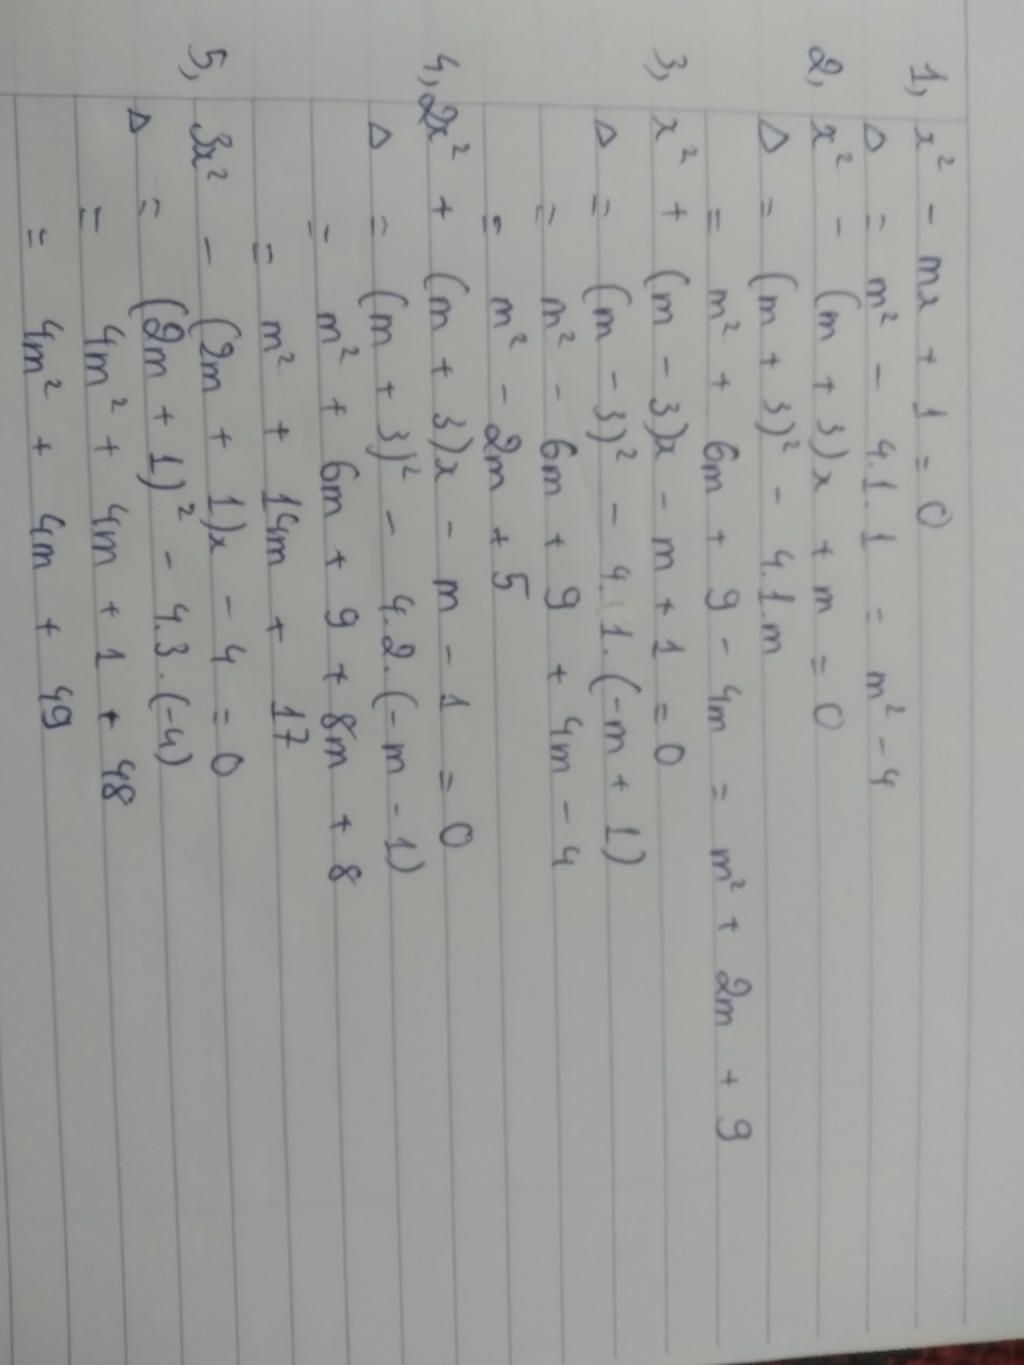 1, x² - mx + 1 = 0
Δ = m² - 4.1.1 = m² - 4
2, x² - (m + 3)x + m = 0
Δ = (m + 3)² - 4.1.m
= m² + 6m + 9 - 4m = m² + 2m + 9
3, x² + (m - 3)x - m + 1 = 0
Δ = (m - 3)² - 4.1.(-m + 1)
= m² - 6m + 9 + 4m - 4
= m² - 2m + 5
4, 2x² + (m + 3)x - m - 1 = 0
Δ = (m + 3)² - 4.2.(-m - 1)
= m² + 6m + 9 + 8m + 8
= m² + 14m + 17
5, 3x² - (2m + 1)x - 4 = 0
Δ = (2m + 1)² - 4.3.(-4)
= 4m² + 4m + 1 + 48
= 4m² + 4m + 49